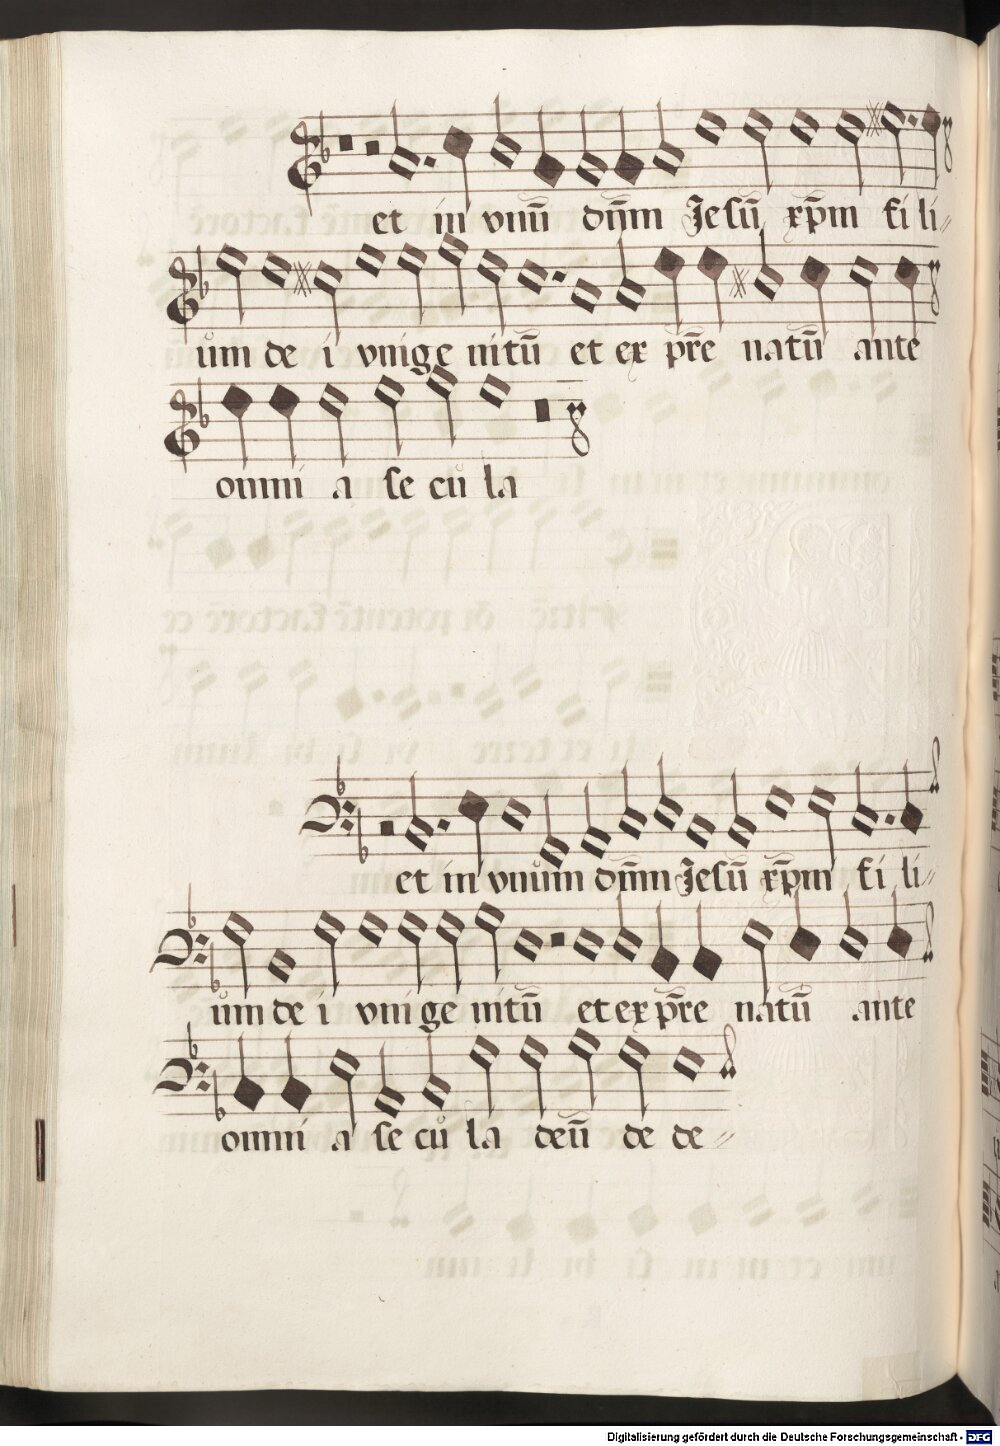 et in vnuū dn̄m Jesū xp̄m fi li
um de i vnige nitū et ex pr̄e natū ante
omni a se cu la
et in vnum dn̄m Jesū xp̄m fi li
um de i vnige nitū et ex pr̄e natū ante
omni a se cu la deū de de
Digitalisierung gefördert durch die Deutsche Forschungsgemeinschaft - DFG